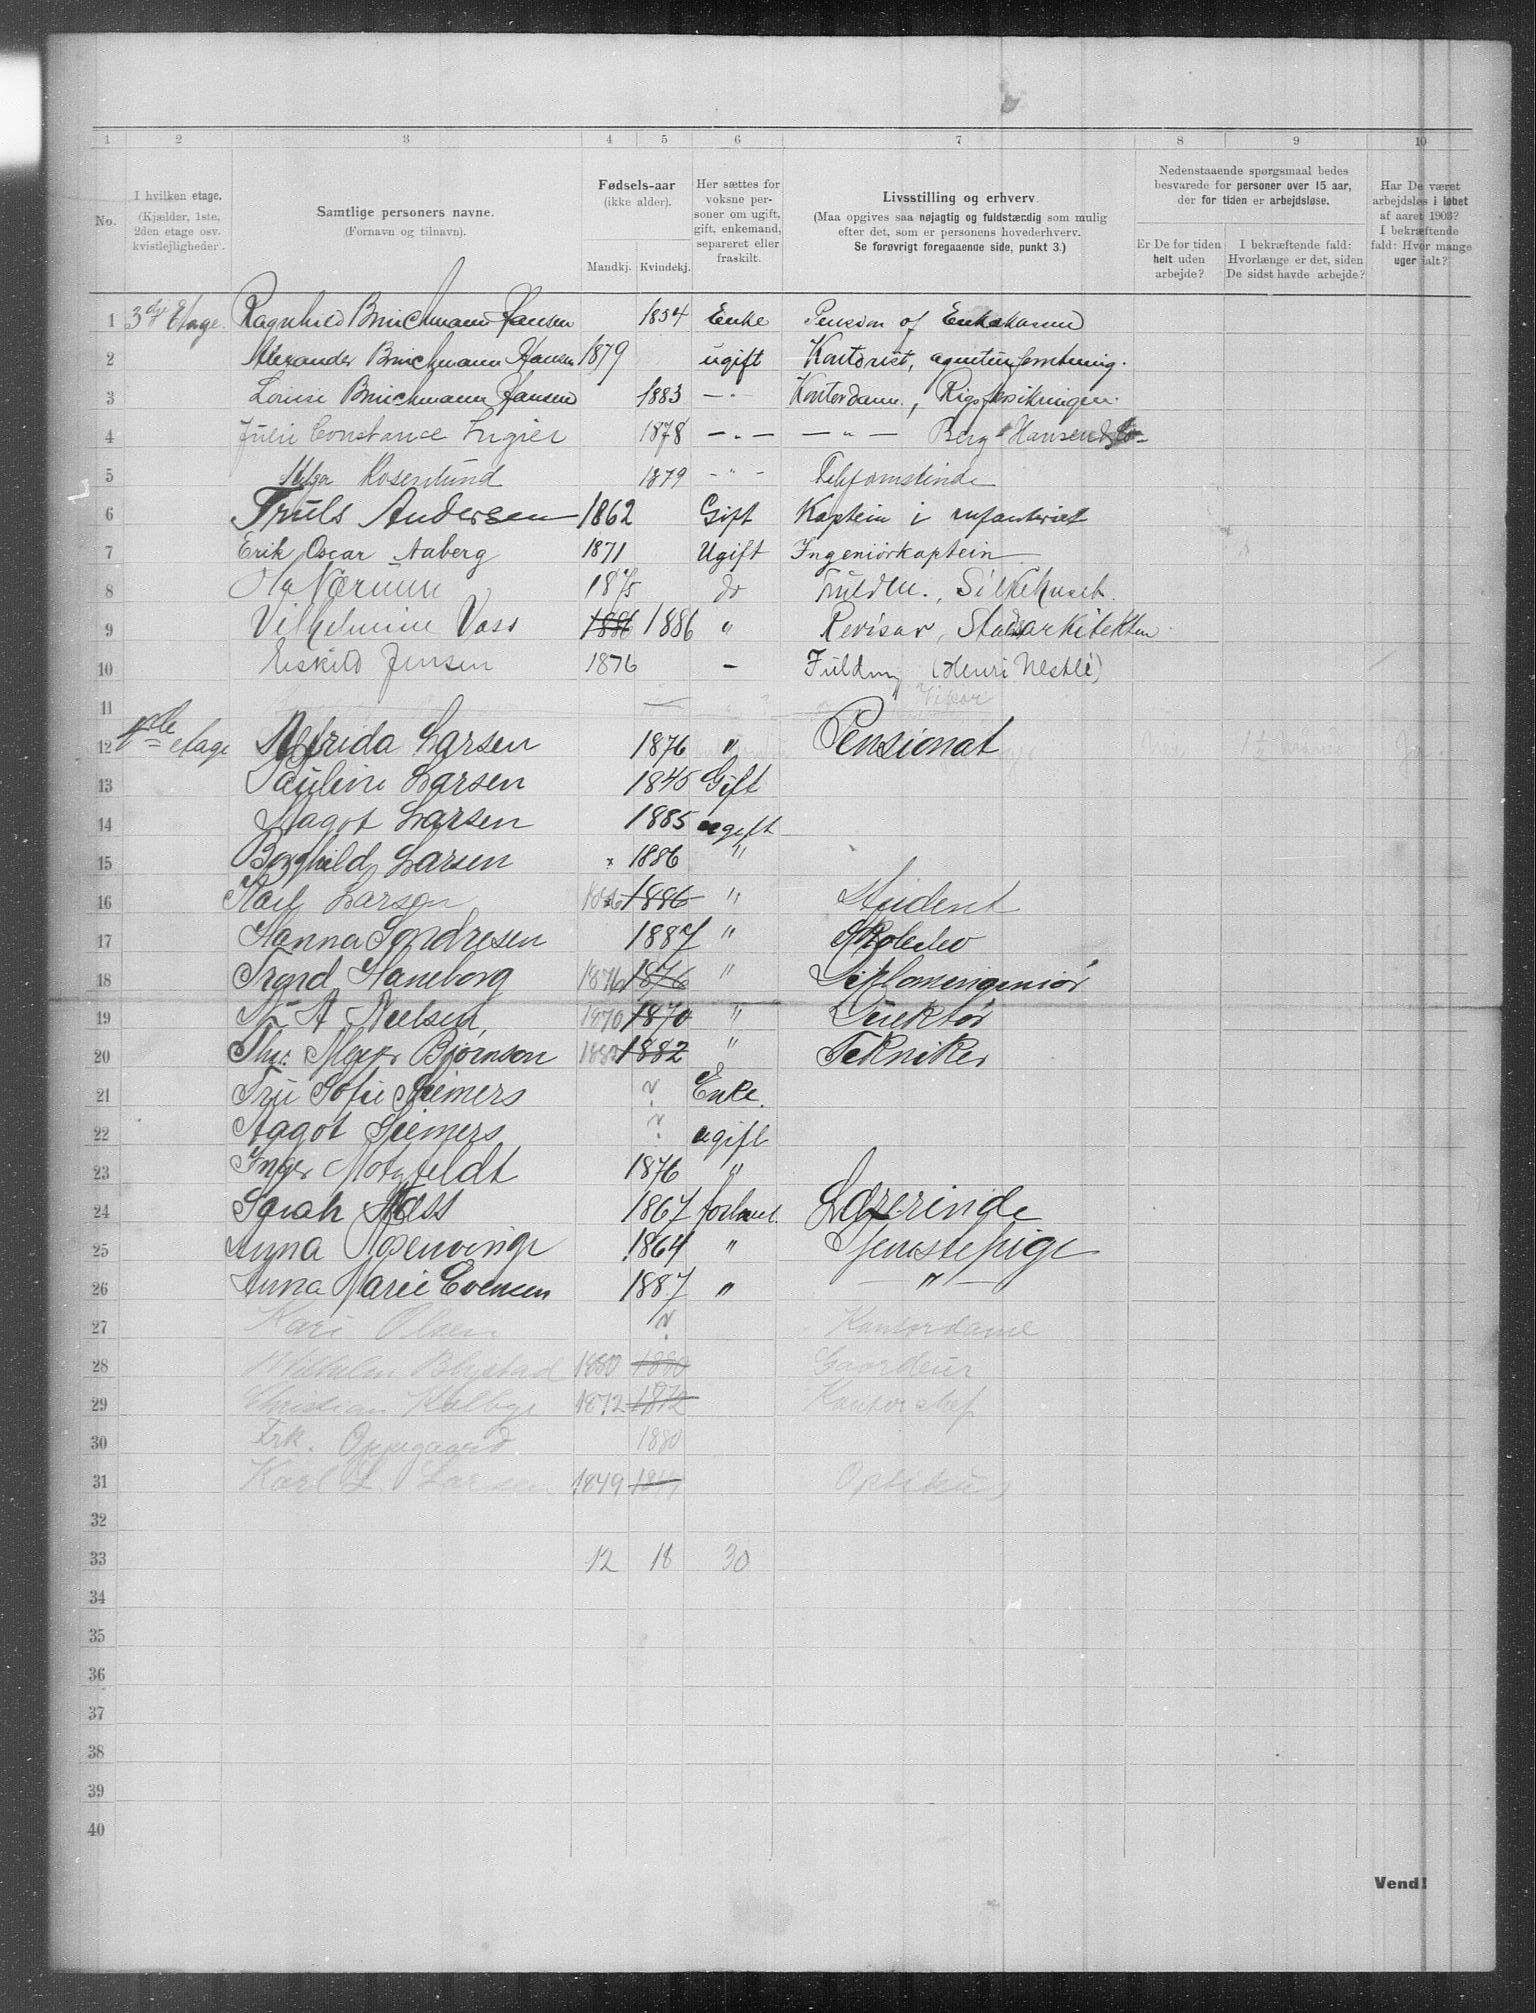 1 2 3 4 5 6 7 8 9 10
No.
I hvilken etage.
(Kjælder, 1ste, 2den etage osv. kvistlejligheder.
Samtlige personers navne.
(Fornavn og tilnavn).
Fødsels-aar
(ikke alder).
Mandkj. Kvindekj.
Her sættes for voksne personer om ugift, gift, enkemand, separeret eller fraskilt.
Livsstilling og erhverv.
(Maa opgives saa nøjagtig og fuldstændig som mulig efter det, som er personens hovederhverv.
Se forøvrigt foregaaende side, punkt 3.)
Nedenstaaende spørgsmaal bedes besvarede for personer over 15 aar, der for tiden er arbejdsløse.
Er De for tiden helt uden arbejde?
I bekræftende fald: Hvorlænge er det, siden De sidst havde arbejde?
Har De været arbejdsløs i løbet af aaret 1903? I bekræftende fald: Hvor mange uger ialt?
1 3die Etage. Ragnhild Bruchmann Hansen 1834 Enke Pension af Enkekassen
2 Alexander Bruchmann Hansen 1879 ugift Kontorist, agenturforretning.
3 Louise Bruchmann Hansen 1883 — " — Kontordame, Rigsforsikringen.
4 Julie Constance Ingier 1878 — " — — " — Berg Hansen & Co
5 Helga Rosenlund 1879 — " —
6 Truls Andersen 1862 Gift Kaptein i infanteriet
7 Erik Oscar Aaberg 1871 Ugift Ingeniörkaptein
8 Ola Nærum do Fuldm., Silkehuset.
9 Vilhelmine Voss 1886 1886 " Revisor, Stadsarkitekten
10 Eskild Jensen 1876 — Fuldm (Henri Nestlé)
11
12 etage Alfrida Larsen 1876 " Pensionat
13 Pauline Larsen 1845 Gift
14 Magot Larsen 1885 ugift
15 Borghild Larsen 1886 "
16 Karl Larsen 1886 1886 " Student
17 Hanna Sondresen 1887 " Skoleelev
18 Trond Haneborg 1876 1876 " Diplomingeniør
19 A Nielsen 1870 1870 " Direktør
20 Thr. Meyer Bjørnson 1882 1882 " Tekniker
21 Fru Sofie Siemers ? Enke.
22 Aagot Siemers ? ugift
23 Inger Motzfeldt 1876 "
24 Sarah Næss 1867 forlovet. Lærerinde
25 Anna Rosenvinge 1864 " Tjenestepige
26 Anna Marie Evensen 1887 " — " —
27 Kari Olsen ? Kontordame
28 Wilhelm Blystad 1880 1880
29 Christian Kolbye 1872 1872 Kontorchef
30 Frk. Oppegaard 1880
31 Karl L. Larsen 1849 1849 Optikus
32
33 12 18 30
34
35
36
37
38
39
40
Vend!